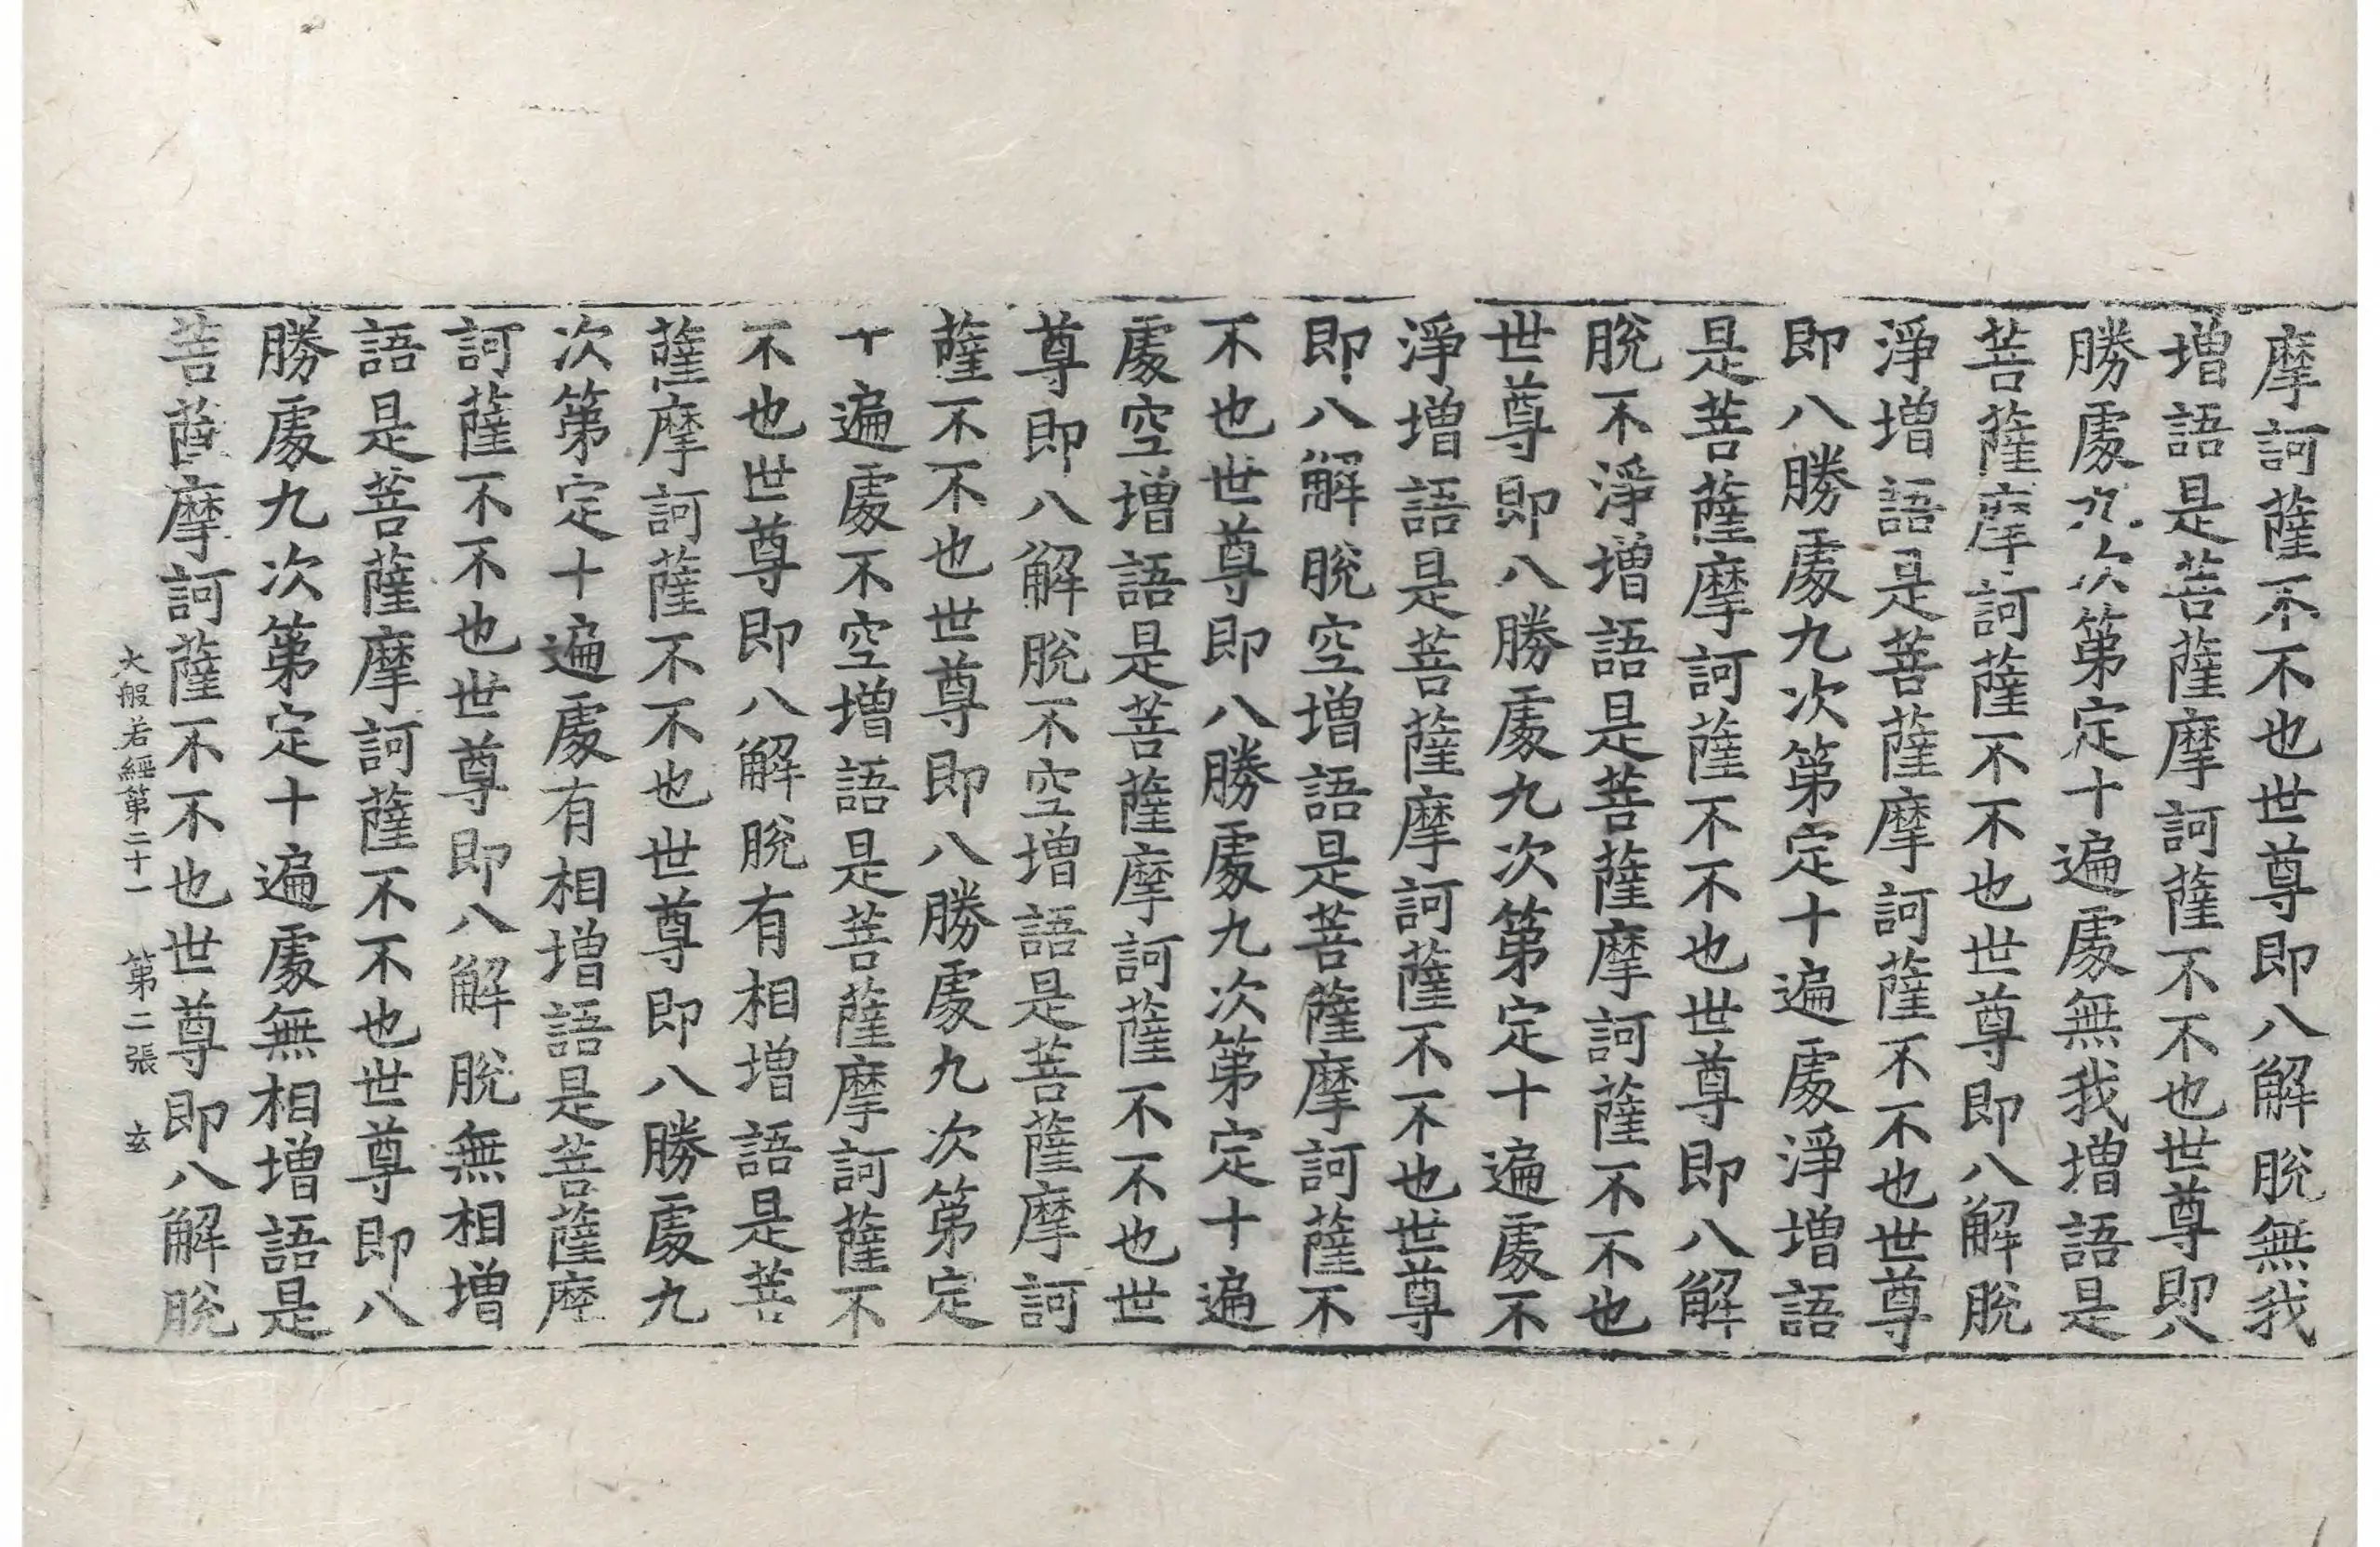 摩訶薩不不也世尊即八解脫無我
增語是菩薩摩訶薩不不也世尊即八
勝處九次第定十遍處無我增語是
菩薩摩訶薩不不也世尊即八解脫
淨增語是菩薩摩訶薩不不也世尊
即八勝處九次第定十遍處淨增語
是菩薩摩訶薩不不也世尊即八解
脫不淨增語是菩薩摩訶薩不不也
世尊即八勝處九次第定十遍處不
淨增語是菩薩摩訶薩不不也世尊
即八解脫空增語是菩薩摩訶薩不
不也世尊即八勝處九次第定十遍
處空增語是菩薩摩訶薩不不也世
尊即八解脫不空增語是菩薩摩訶
薩不不也世尊即八勝處九次第定
十遍處不空增語是菩薩摩訶薩不
不也世尊即八解脫有相增語是菩
薩摩訶薩不不也世尊即八勝處九
次第定十遍處有相增語是菩薩摩
訶薩不不也世尊即八解脫無相增
語是菩薩摩訶薩不不也世尊即八
勝處九次第定十遍處無相增語是
菩薩摩訶薩不不也世尊即八解脫
大般若經第二十一 第二張 玄